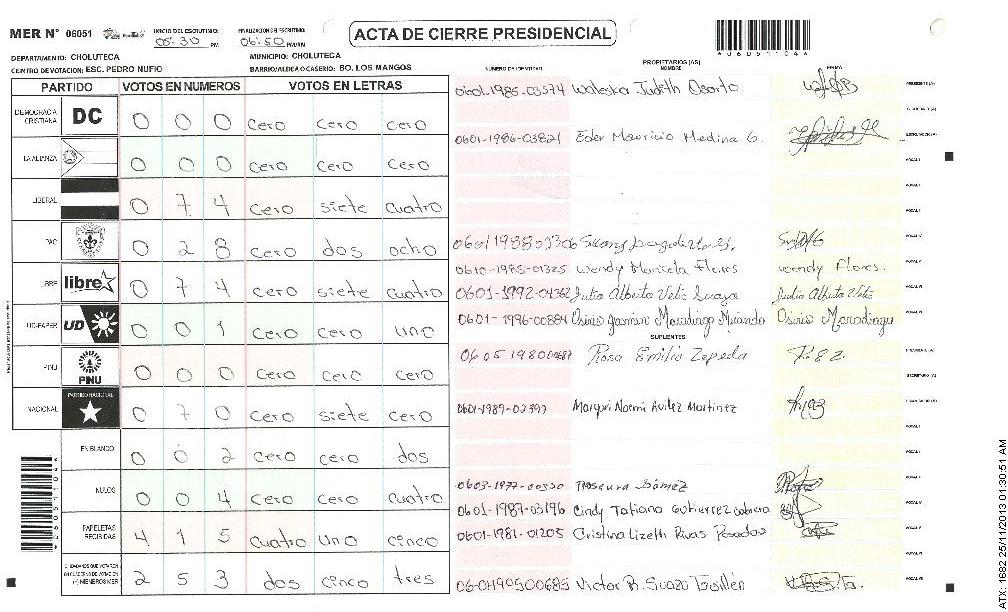 MER N° 06051 INICIO DEL ESCRUTINIO: 05:30 PM FINALIZACION DEL ESCRUTINIO: 06:50 PM/AM
ACTA DE CIERRE PRESIDENCIAL
DEPARTAMENTO: CHOLUTECA MUNICIPIO: CHOLUTECA
CENTRO DE VOTACION: ESC. PEDRO NUFIO BARRIO/ALDEA O CASERIO: BO. LOS MANGOS
PARTIDO VOTOS EN NUMEROS VOTOS EN LETRAS
DEMOCRACIA CRISTIANA DC 0 0 0 cero cero cero
LA ALIANZA 0 0 0 cero cero cero
LIBERAL 0 7 4 cero siete cuatro
PAC 0 2 8 cero dos ocho
LIBRE libre 0 7 4 cero siete cuatro
UD-FAPER UD 0 0 1 cero cero uno
PINU PINU 0 0 0 cero cero cero
NACIONAL PARTIDO NACIONAL 0 7 0 cero siete cero
EN BLANCO 0 0 2 cero cero dos
NULOS 0 0 4 cero cero cuatro
PAPELETAS RECIBIDAS 4 1 5 cuatro uno cinco
CIUDADANOS QUE VOTARON EN CUADERNO DE VOTACION (+) MIEMBROS MER 2 5 3 dos cinco tres
NUMERO DE IDENTIDAD PROPIETARIOS (AS) NOMBRE FIRMA
0601-1985-03574 Waleska Judith Osorto PRESIDENTE (A)
SECRETARIO (A)
0601-1986-03821 Eder Mauricio Medina G. ESCRUTADOR (A)
VOCAL I
0610-1985-01325 Wendy Maricela Flores Wendy Flores.
0601-1992-04362 Julio Alberto Velis Julio Alberto Velis
0601-1996-00884 Maradiaga Maradiaga
SUPLENTES
Rosa Emilia Zepeda PRESIDENTE (A)
SECRETARIO (A)
0601-1989-02397 Noemi Avilez Martinez
0603-1977-00320 Rosaura Gómez
0601-1987-03196 Cindy Tatiana Gutierrez Cabrera
0601-1981-01205 Cristina Lizeth Rivas Posadas
Victor B. Suazo
ATX: 1682 25/11/2013 01:30:51 AM